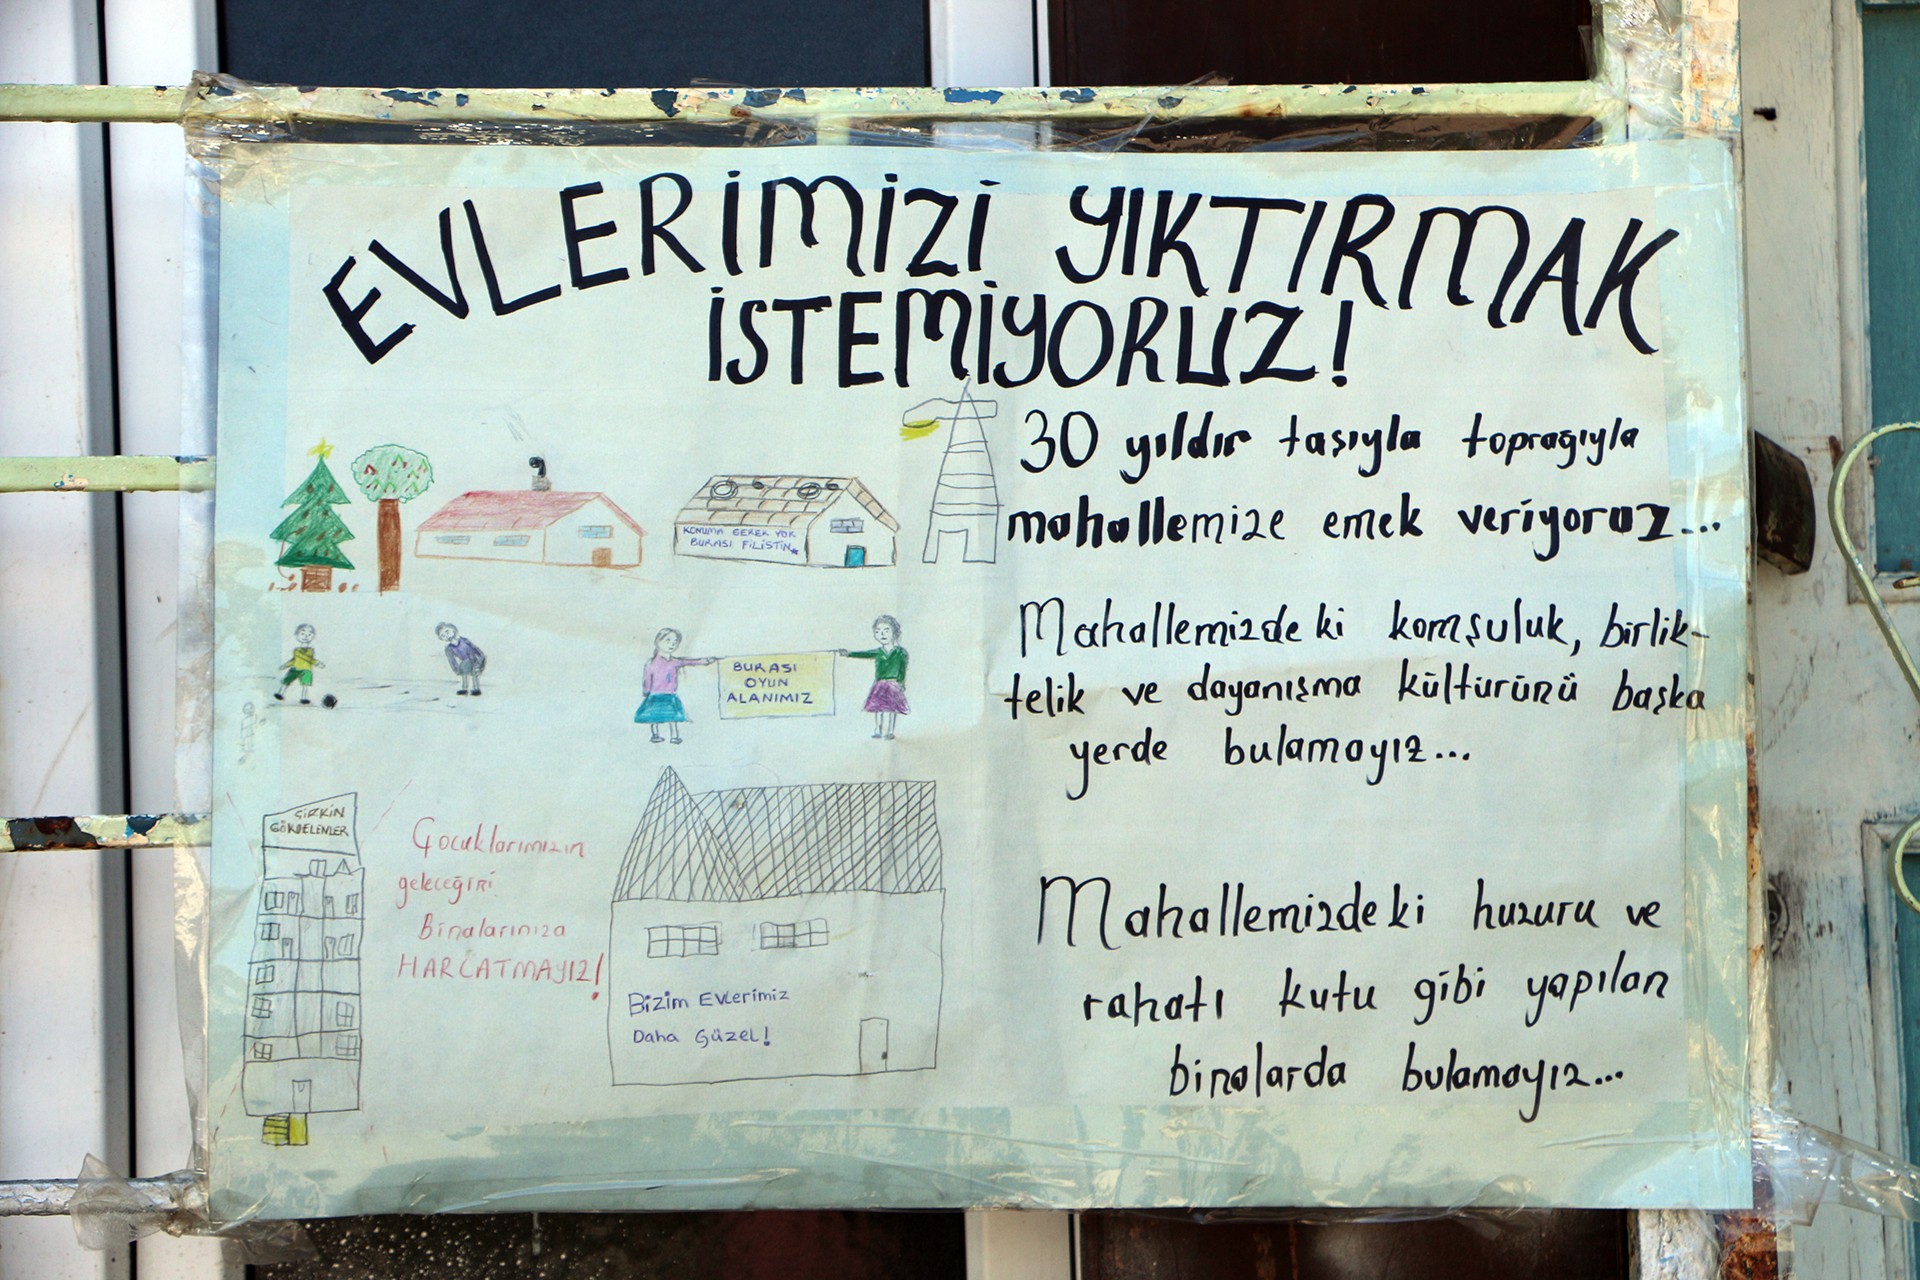 EVLERİMİZİ YIKTIRMAK
İSTEMİYORUZ!
30 yıldır taşıyla toprağıyla
mahallemize emek veriyoruz...
Mahallemizdeki komşuluk, birlik-
telik ve dayanışma kültürünü başka
yerde bulamayız...
Mahallemizdeki huzuru ve
rahatı kutu gibi yapılan
binalarda bulamayız...
KONUMA GEREK YOK
BURASI FİLİSTİN
BURASI
OYUN
ALANIMIZ
ÇİRKİN
GÖKDELENLER
Çocuklarımızın
geleceğini
Binalarınıza
HARCATMAYIZ!
Bizim Evlerimiz
Daha Güzel!